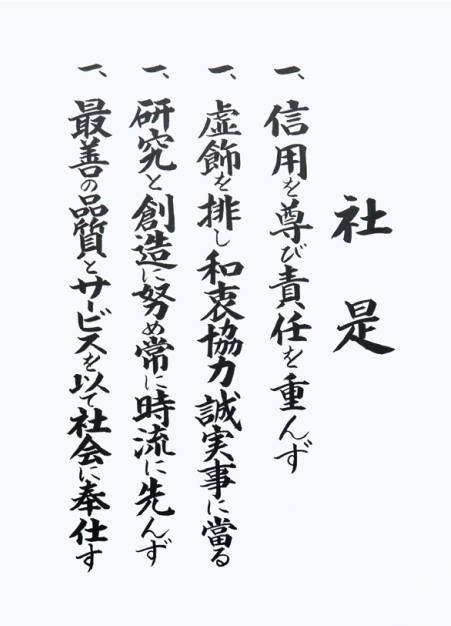 社是
一、信用を尊び責任を重んず
一、虚飾を排し和衷協力誠実事に當る
一、研究と創造に努め常に時流に先んず
一、最善の品質とサービスを以て社会に奉仕す